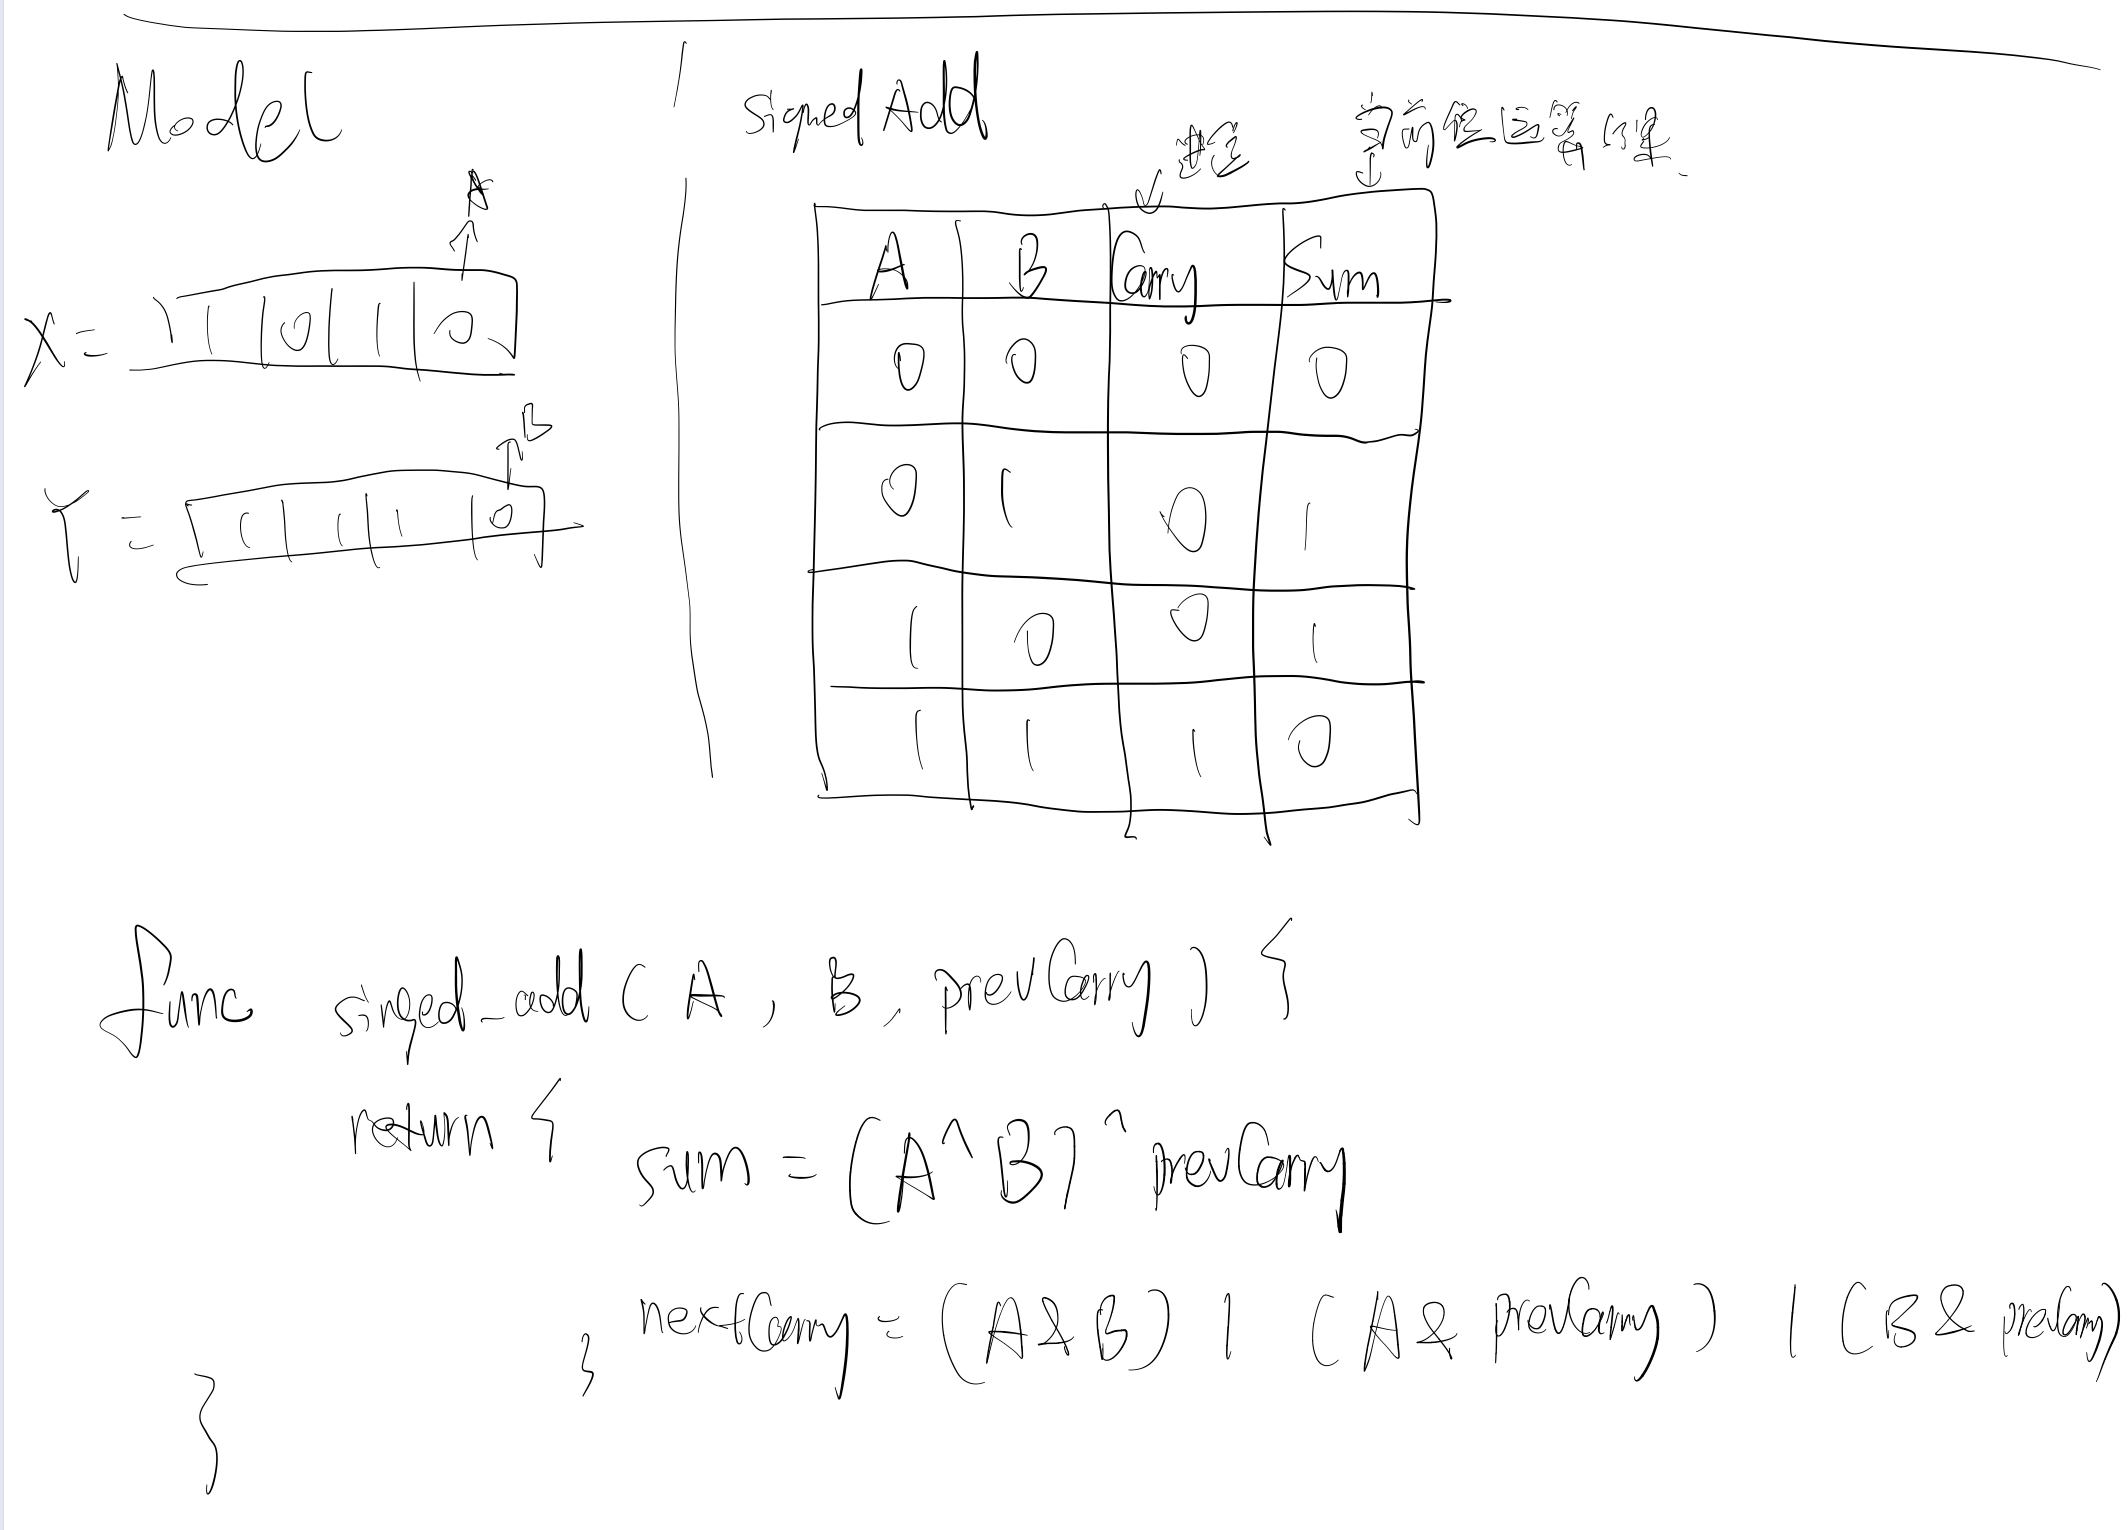 Model
A
X = 1 0 1 0
B
Y = 1 1 1 0
Signed Add
进位
当前位运算结果
A B Carry Sum
0 0 0 0
0 1 0 1
1 0 0 1
1 1 1 0
func singed_add ( A , B , prevCarry ) {
return { sum = (A ^ B) ^ prevCarry
} nextCarry = (A & B) | ( A & prevCarry ) | ( B & prevCarry)
}